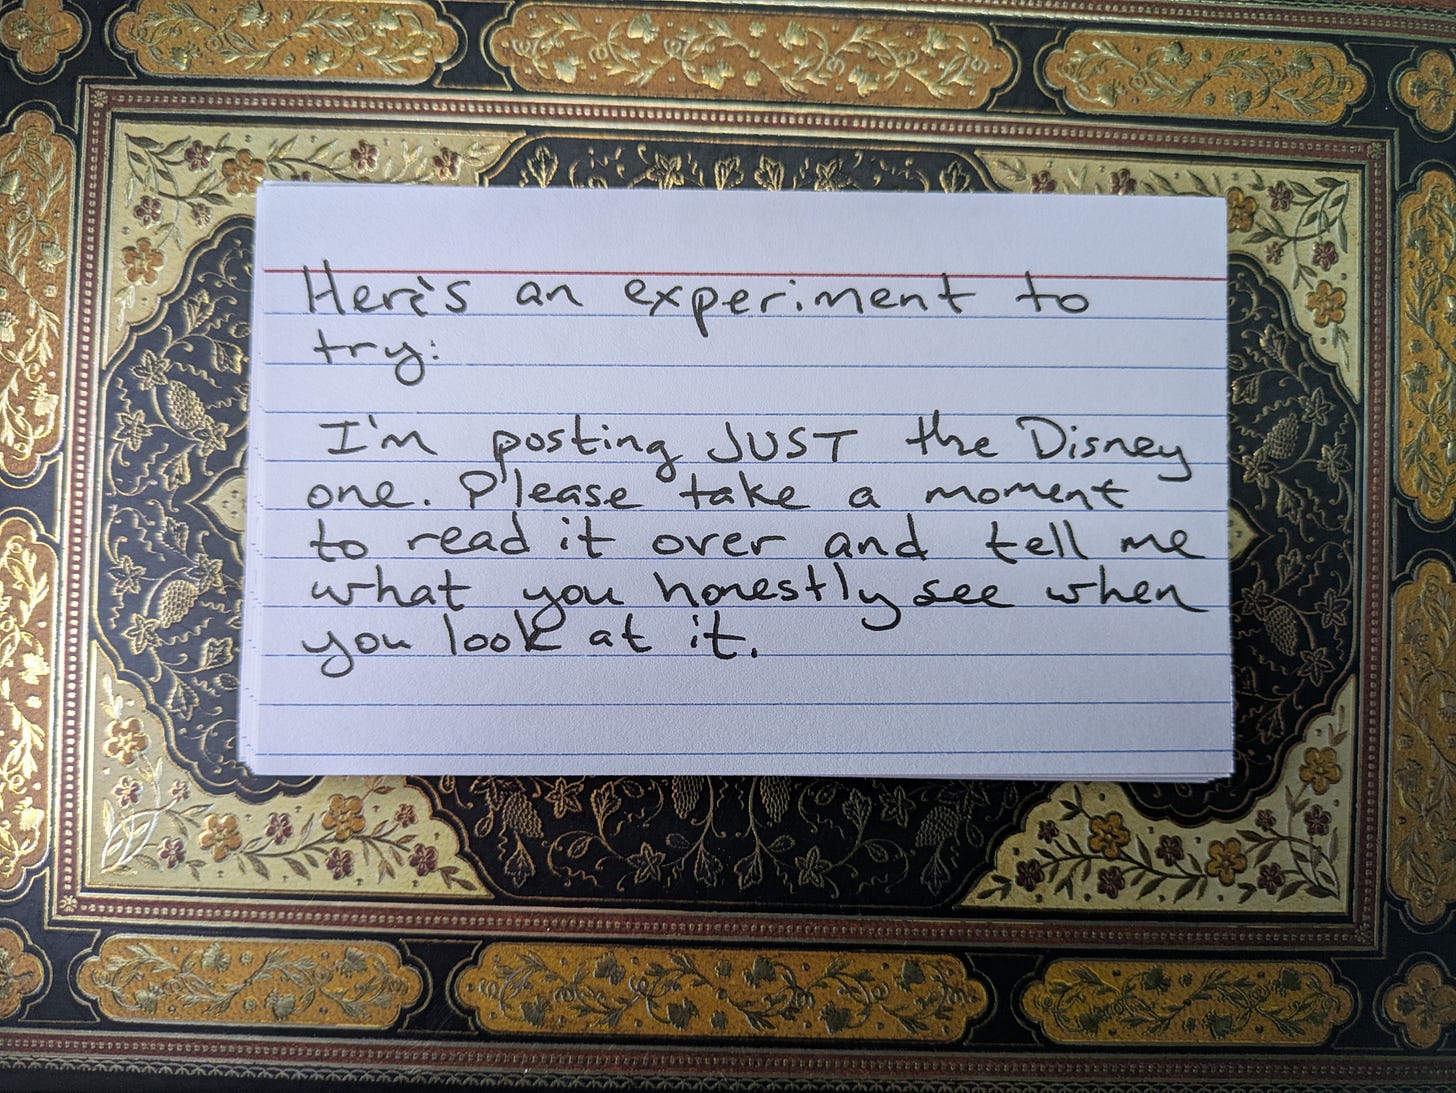 Here's an experiment to
try:
I'm posting JUST the Disney
one. Please take a moment
to read it over and tell me
what you honestly see when
you look at it.